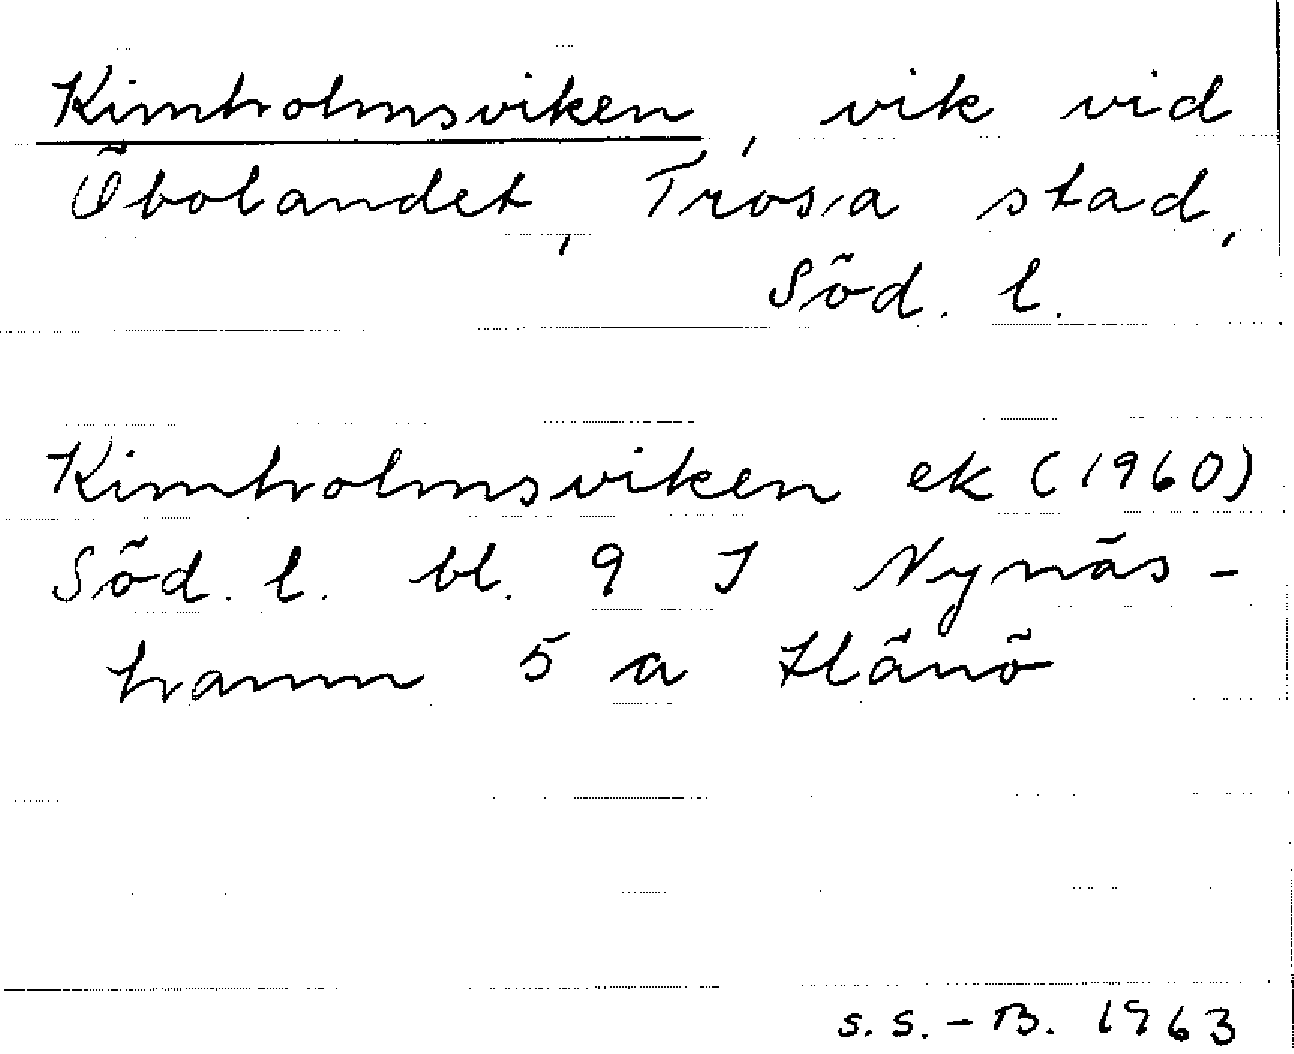 Kimholmsviken, vik vid
Öbolandet, Trosa stad,
Söd. l.
Kimholmsviken ek (1960)
Söd. l. bl. 9 J Nynäs-
hamn 5 a Hänö
S.S.-B. 1963